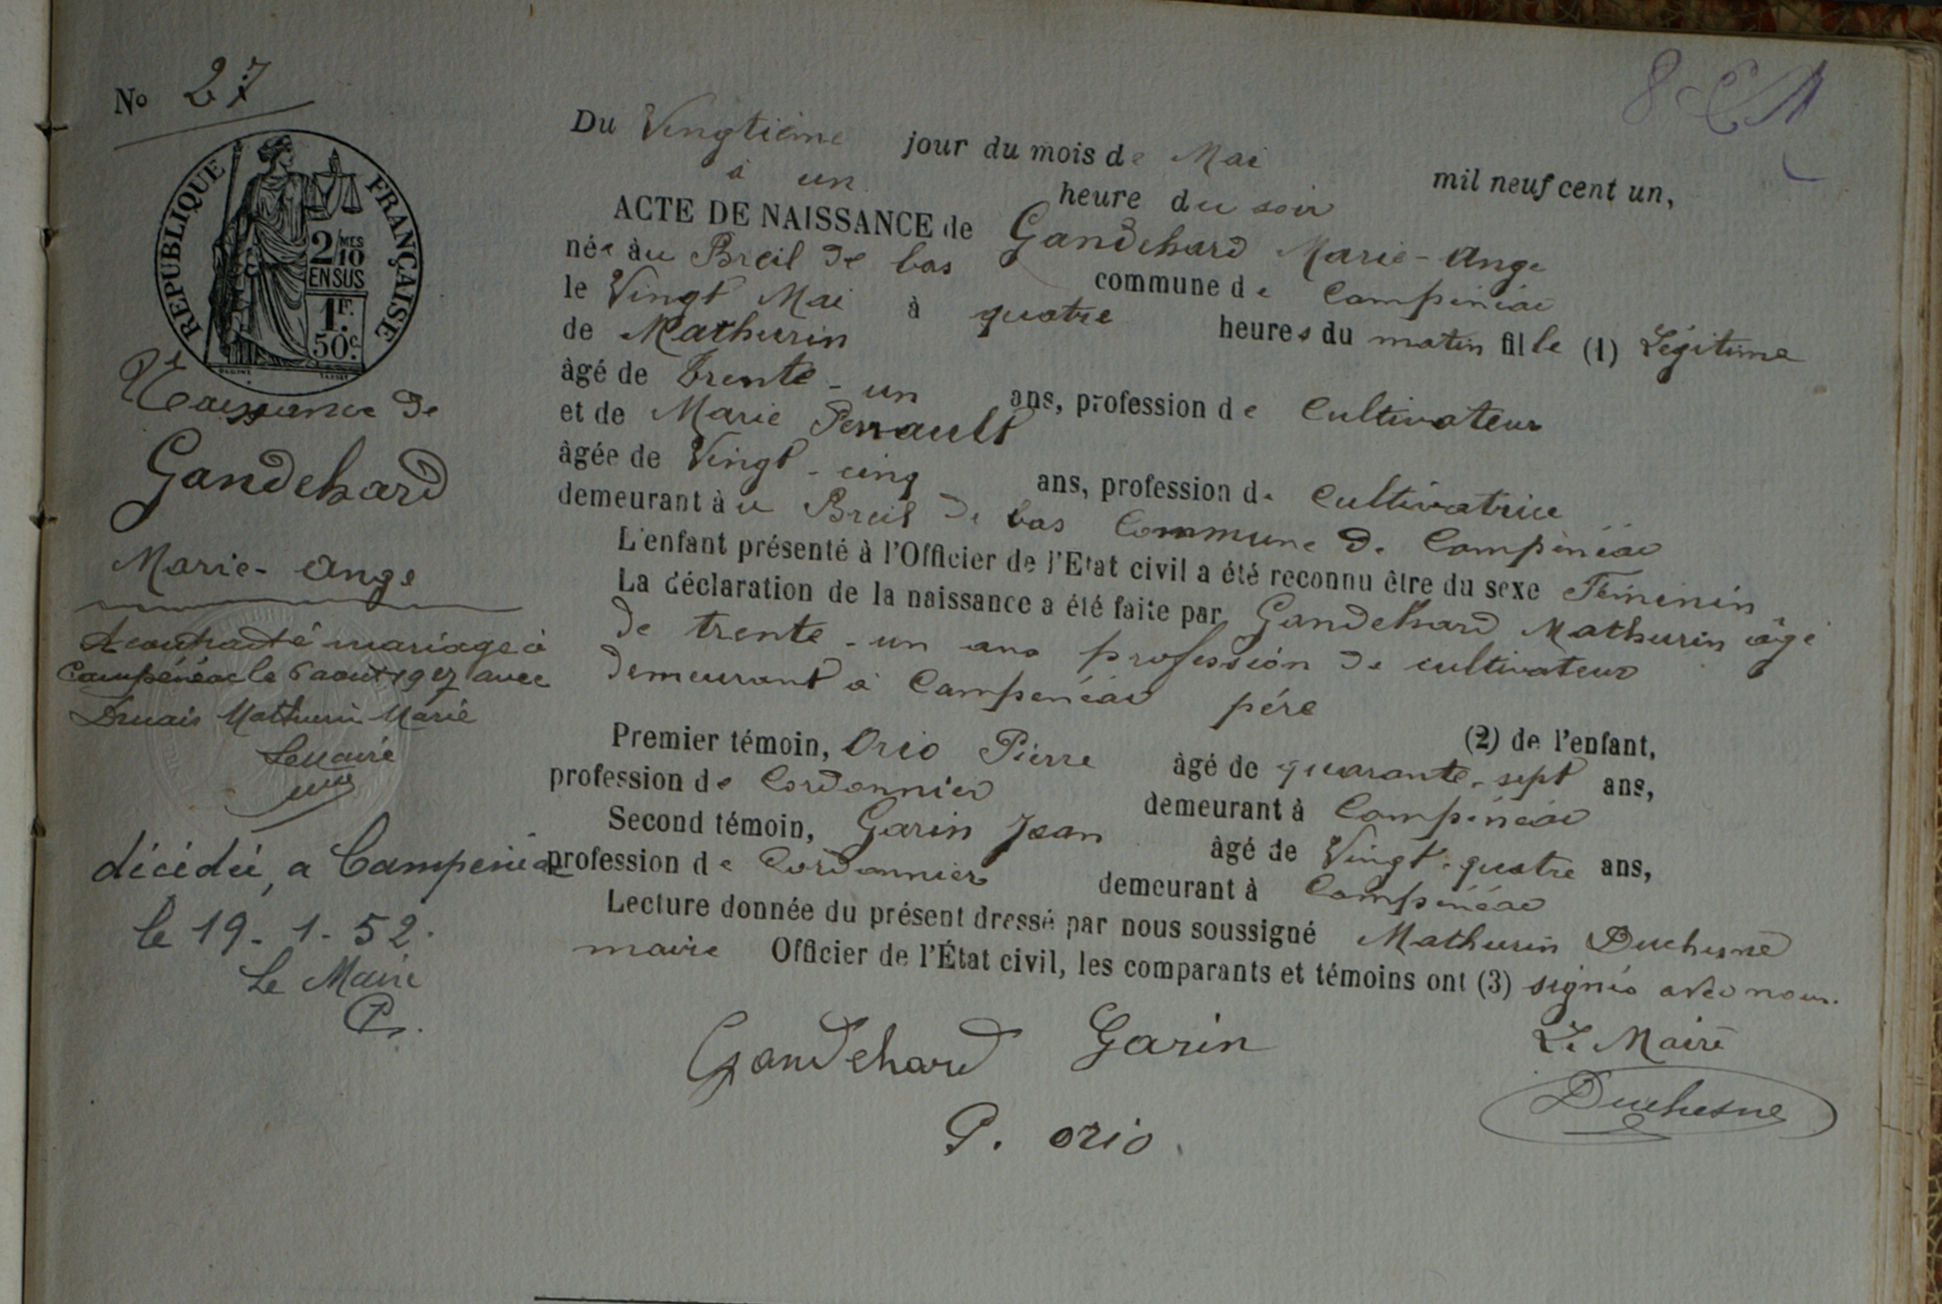 No 27
8 E M
RÉPUBLIQUE FRANÇAISE
2/10 MES
EN SUS
1F.
50c
Naissance de
Gandehard
Marie-Ange
A contracté mariage à
Campénéac le 6 août 1927 avec
Druais Mathurin Marie
Le Maire
décédée, a Campénéac
le 19-1-52.
Le Maire
Du Vingtième jour du mois de Mai mil neuf cent un,
à un heure du soir
ACTE DE NAISSANCE de Gandehard Marie-Ange
née àu Breil de bas commune de Campénéac
le Vingt Mai à quatre heures du matin fille (1) Légitime
de Mathurin
âgé de trente-un ans, profession de Cultivateur
et de Marie Perrault
âgée de Vingt-cinq ans, profession de Cultivatrice
demeurant àu Breil de bas Commune de Campénéac
L'enfant présenté à l'Officier de l'Etat civil a été reconnu être du sexe Féminin
La déclaration de la naissance a été faite par Gandehard Mathurin âgé
de trente-un ans profession de cultivateur
demeurant à Campénéac père (2) de l'enfant,
Premier témoin, Orio Pierre âgé de quarante-sept ans,
profession de Cordonnier demeurant à Campénéac
Second témoin, Garin Jean âgé de Vingt-quatre ans,
profession de Cordonnier demeurant à Campénéac
Lecture donnée du présent dressé par nous soussigné Mathurin Duchesne
maire Officier de l'État civil, les comparants et témoins ont (3) signés avec nous.
Gandehard Garin Le Maire
P. orio Duchesne